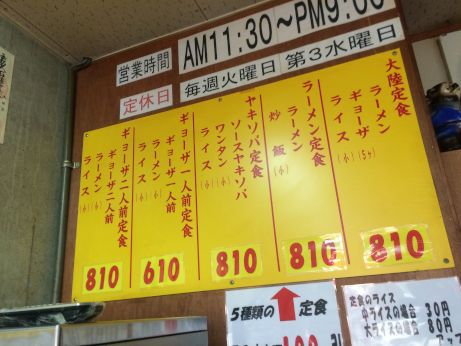 営業時間 AM11:30～PM9:00
定休日 毎週火曜日 第3水曜日
大陸定食
ラーメン
ギョーザ(5ヶ)
ライス(小)
810
ラーメン定食
ラーメン
炒飯(小)
810
ヤキソバ定食
ソースヤキソバ
ワンタン(小)
ライス(小)
810
ギョーザ一人前定食
ギョーザ一人前
ラーメン(小)
ライス(小)
610
ギョーザ二人前定食
ギョーザ二人前
ラーメン(小)
ライス(小)
810
5種類の 定食
定食のライス
中ライスの場合 30円
大ライスの場合 80円